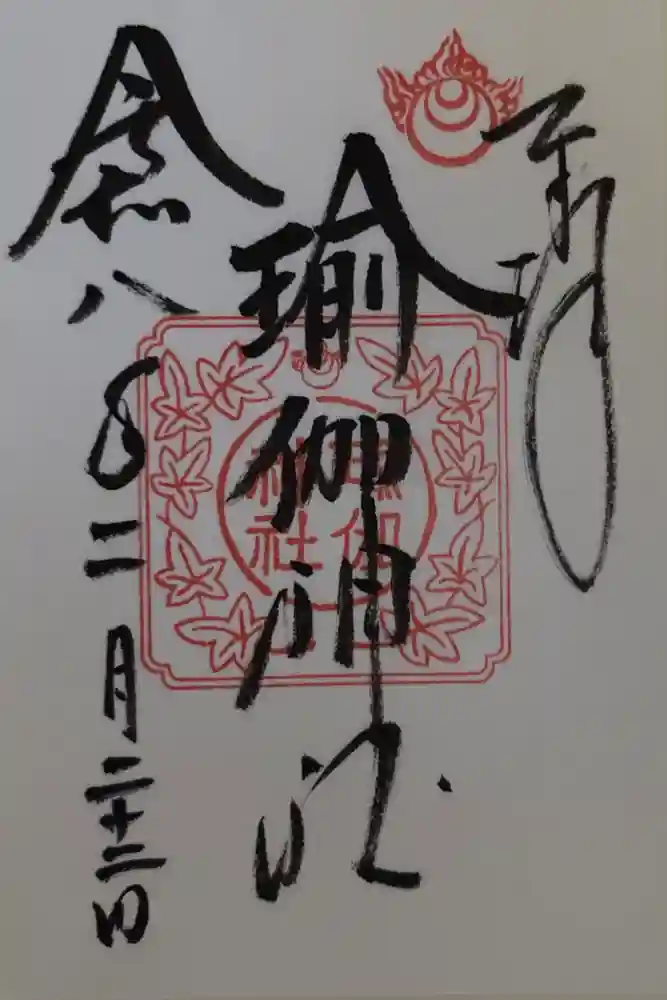 奉拝
瑜伽神社
瑜伽
神社
令和八年二月二十二日